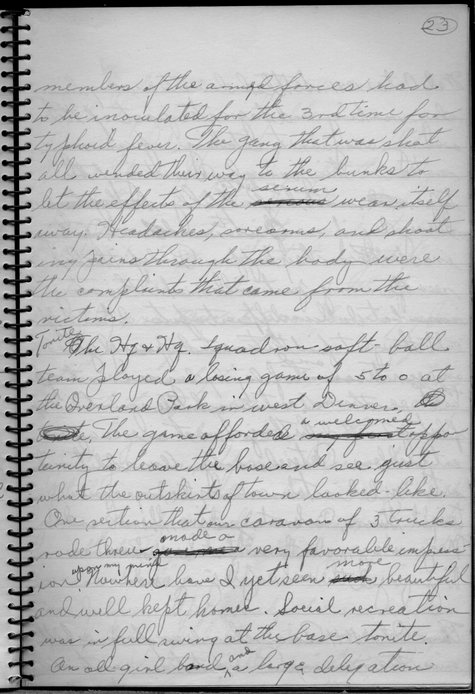 23
members of the armed forces had
to be inoculated for the 3rd time for
typhoid fever. The gang that was shot
all wended their way to the bunks to
let the effects of the serum wear itself
away. Headaches, soreness, and shoot
ing pains through the body were
the complaints that came from the
victims.
Tonite The Hq & Hq. Squadron soft-ball
team played a losing game of 5 to 0 at
the Overland Park in west Denver,
The game afforded a welcomed oppo
tunity to leave the base and see just
what the outskirts of town looked-like.
One section that our caravan of 3 trucks
rode threw made a very favorable impress
ion upon my mind. Nowhere have I yet seen more beautiful
and well kept homes. Social recreation
was in full swing at the base tonite.
An all girl band and a large delegation